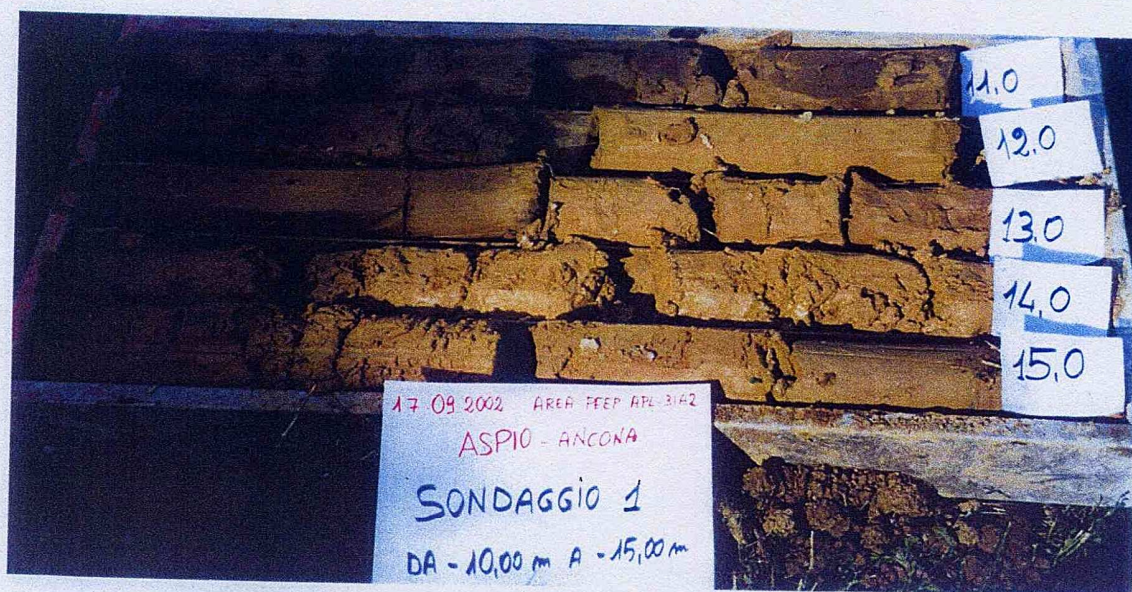 11,0
12,0
13,0
14,0
15,0
17 09 2002 AREA PEEP APL 31A2
ASPIO - ANCONA
SONDAGGIO 1
DA - 10,00 m A - 15,00 m